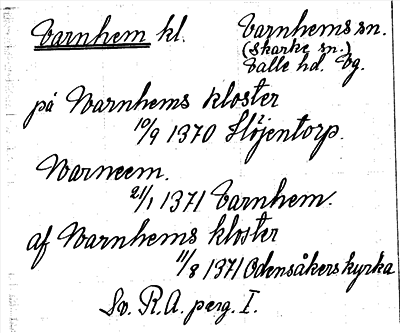 Varnhem kl. Varnhems sn.
(Skarke sn.)
Valle hd. Vg.
på Warnhems kloster
10/9 1370 Höjentorp.
Warneem.
21/1 1371 Varnhem.
af Warnhems kloster
11/8 1371 Odensåkers kyrka
Sv. R.A. perg. I.